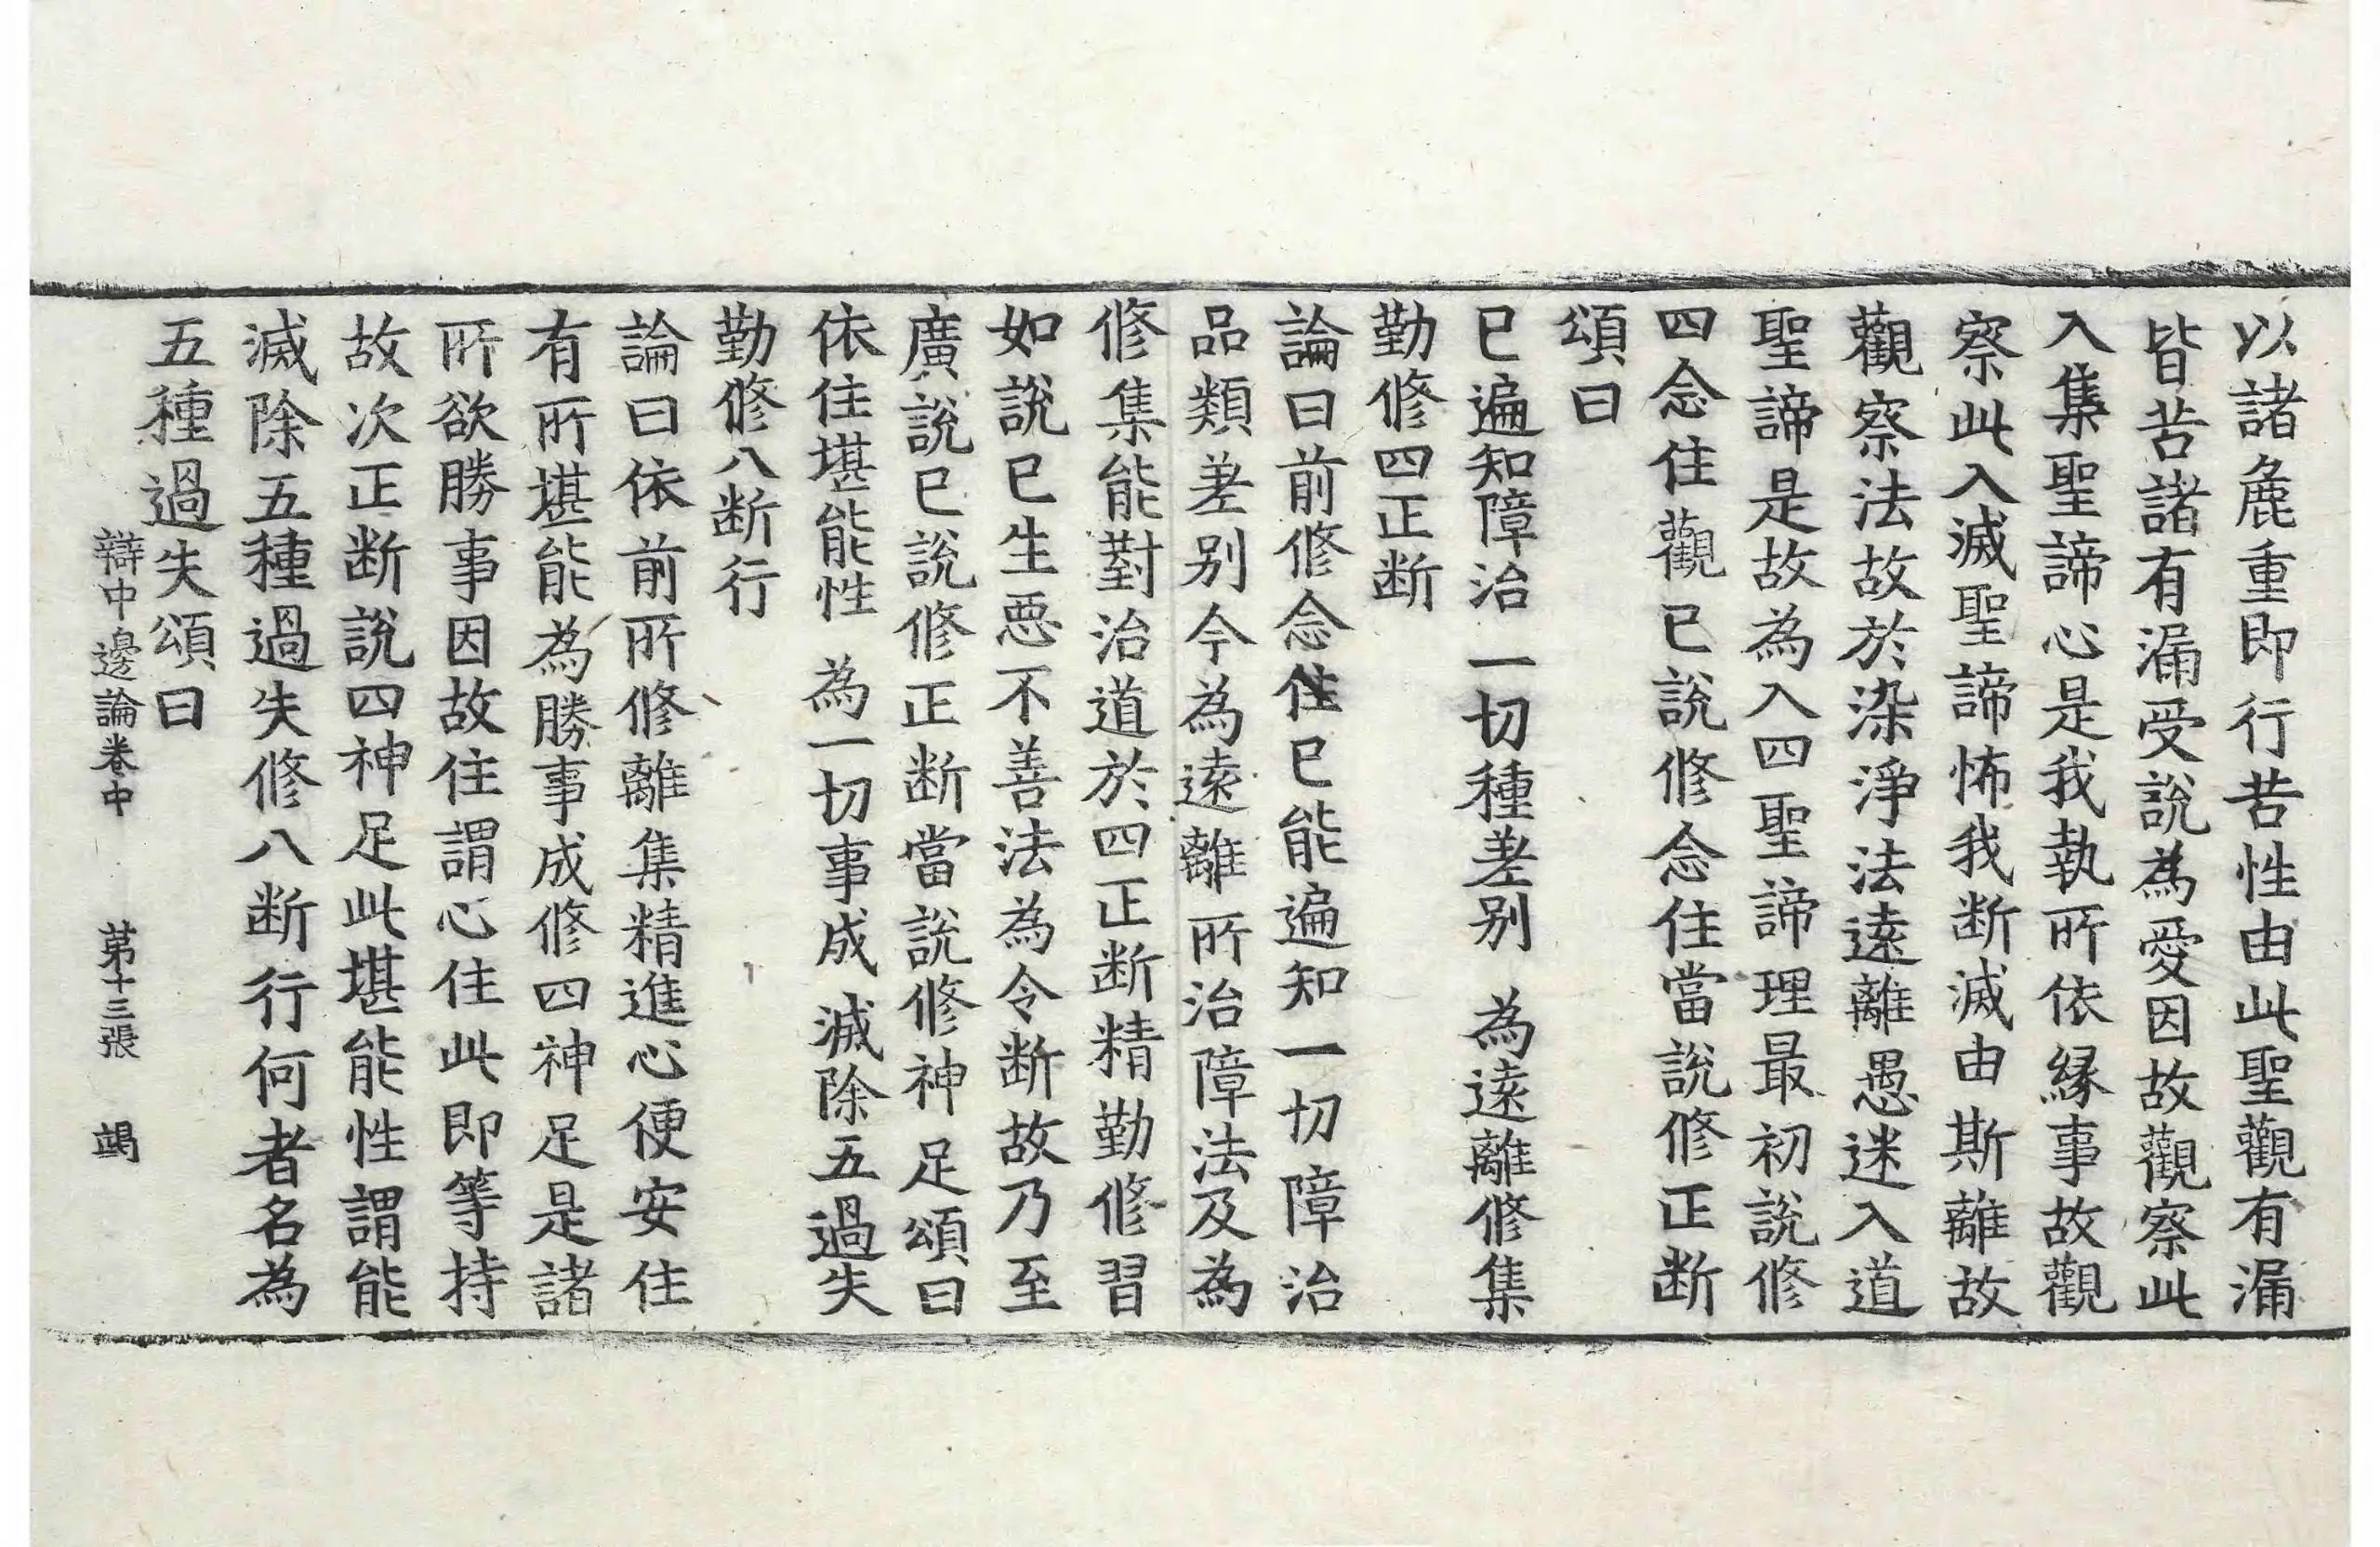 以諸麁重即行苦性由此聖觀有漏
皆苦諸有漏受說為愛因故觀察此
入集聖諦心是我執所依縁事故觀
察此入滅聖諦怖我断滅由斯離故
觀察法故於染淨法遠離愚迷入道
聖諦是故為入四聖諦理最初說修
四念住觀已說修念住當說修正断
頌曰
已遍知障治 一切種差别 為遠離修集
勤修四正断
論曰前修念住已能遍知一切障治
品類差别今為遠離所治障法及為
修集能對治道於四正断精勤修習
如說已生惡不善法為令断故乃至
廣說已說修正断當說修神足頌曰
依住堪能性 為一切事成 滅除五過失
勤修八断行
論曰依前所修離集精進心便安住
有所堪能為勝事成修四神足是諸
所欲勝事因故住謂心住此即等持
故次正断說四神足此堪能性謂能
滅除五種過失修八断行何者名為
五種過失頌曰
辯中邊論卷中 第十三張 竭